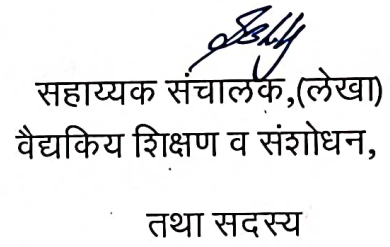 सहाय्यक संचालक,(लेखा)
वैद्यकिय शिक्षण व संशोधन,
तथा सदस्य